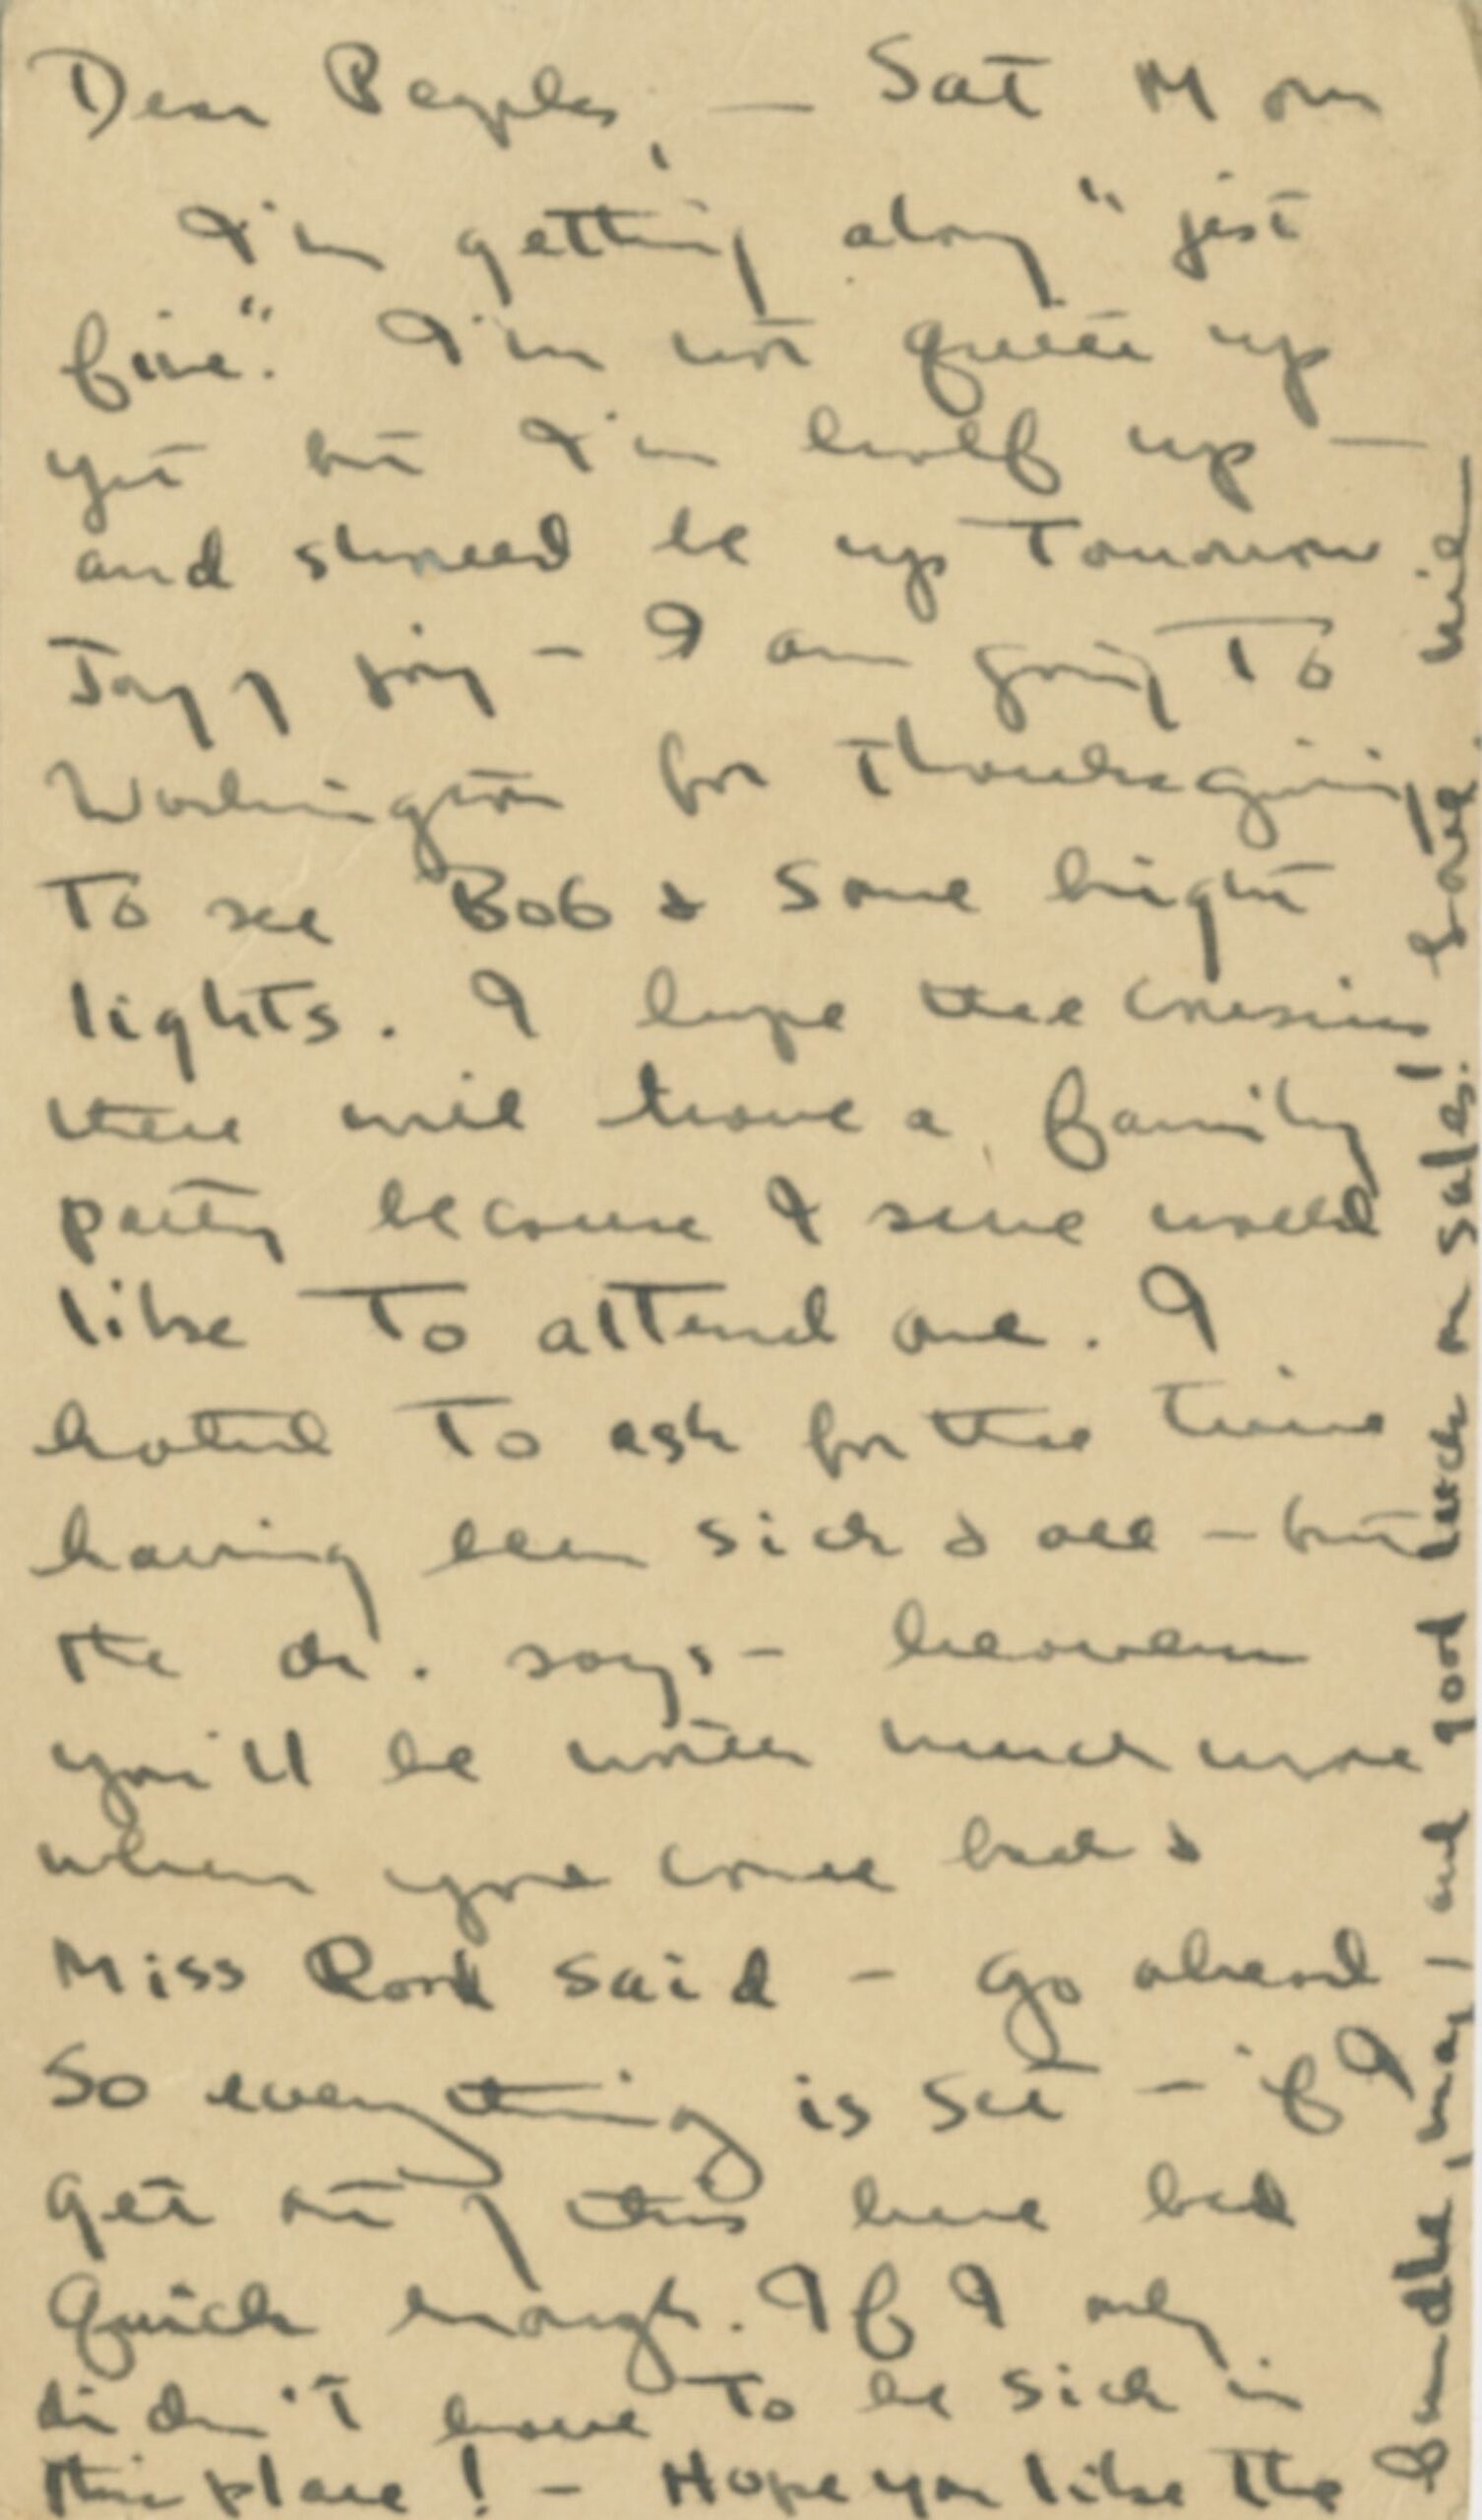 Dear Peoples, — Sat Morn
I'm getting along "jist
fine". I'm not quite up
yet but I'm half up —
and should be up Tomorrow
Joy of joy — I am going To
Washington for Thanksgiving
To see Bob & some bright
lights. I hope the cousins
there will have a family
party because I sure would
like To attend one. I
hated To ask for the time
having been sick & all — but
the dr. says — heavens
you'll be worth much more
when you come back &
Miss Rood said — go ahead
So everything is set — if I
get out of this here bed
quick enough. If I only
didn't have To be sick in
this place! — Hope you like the
bundle, may, and good luck on sales! Love,